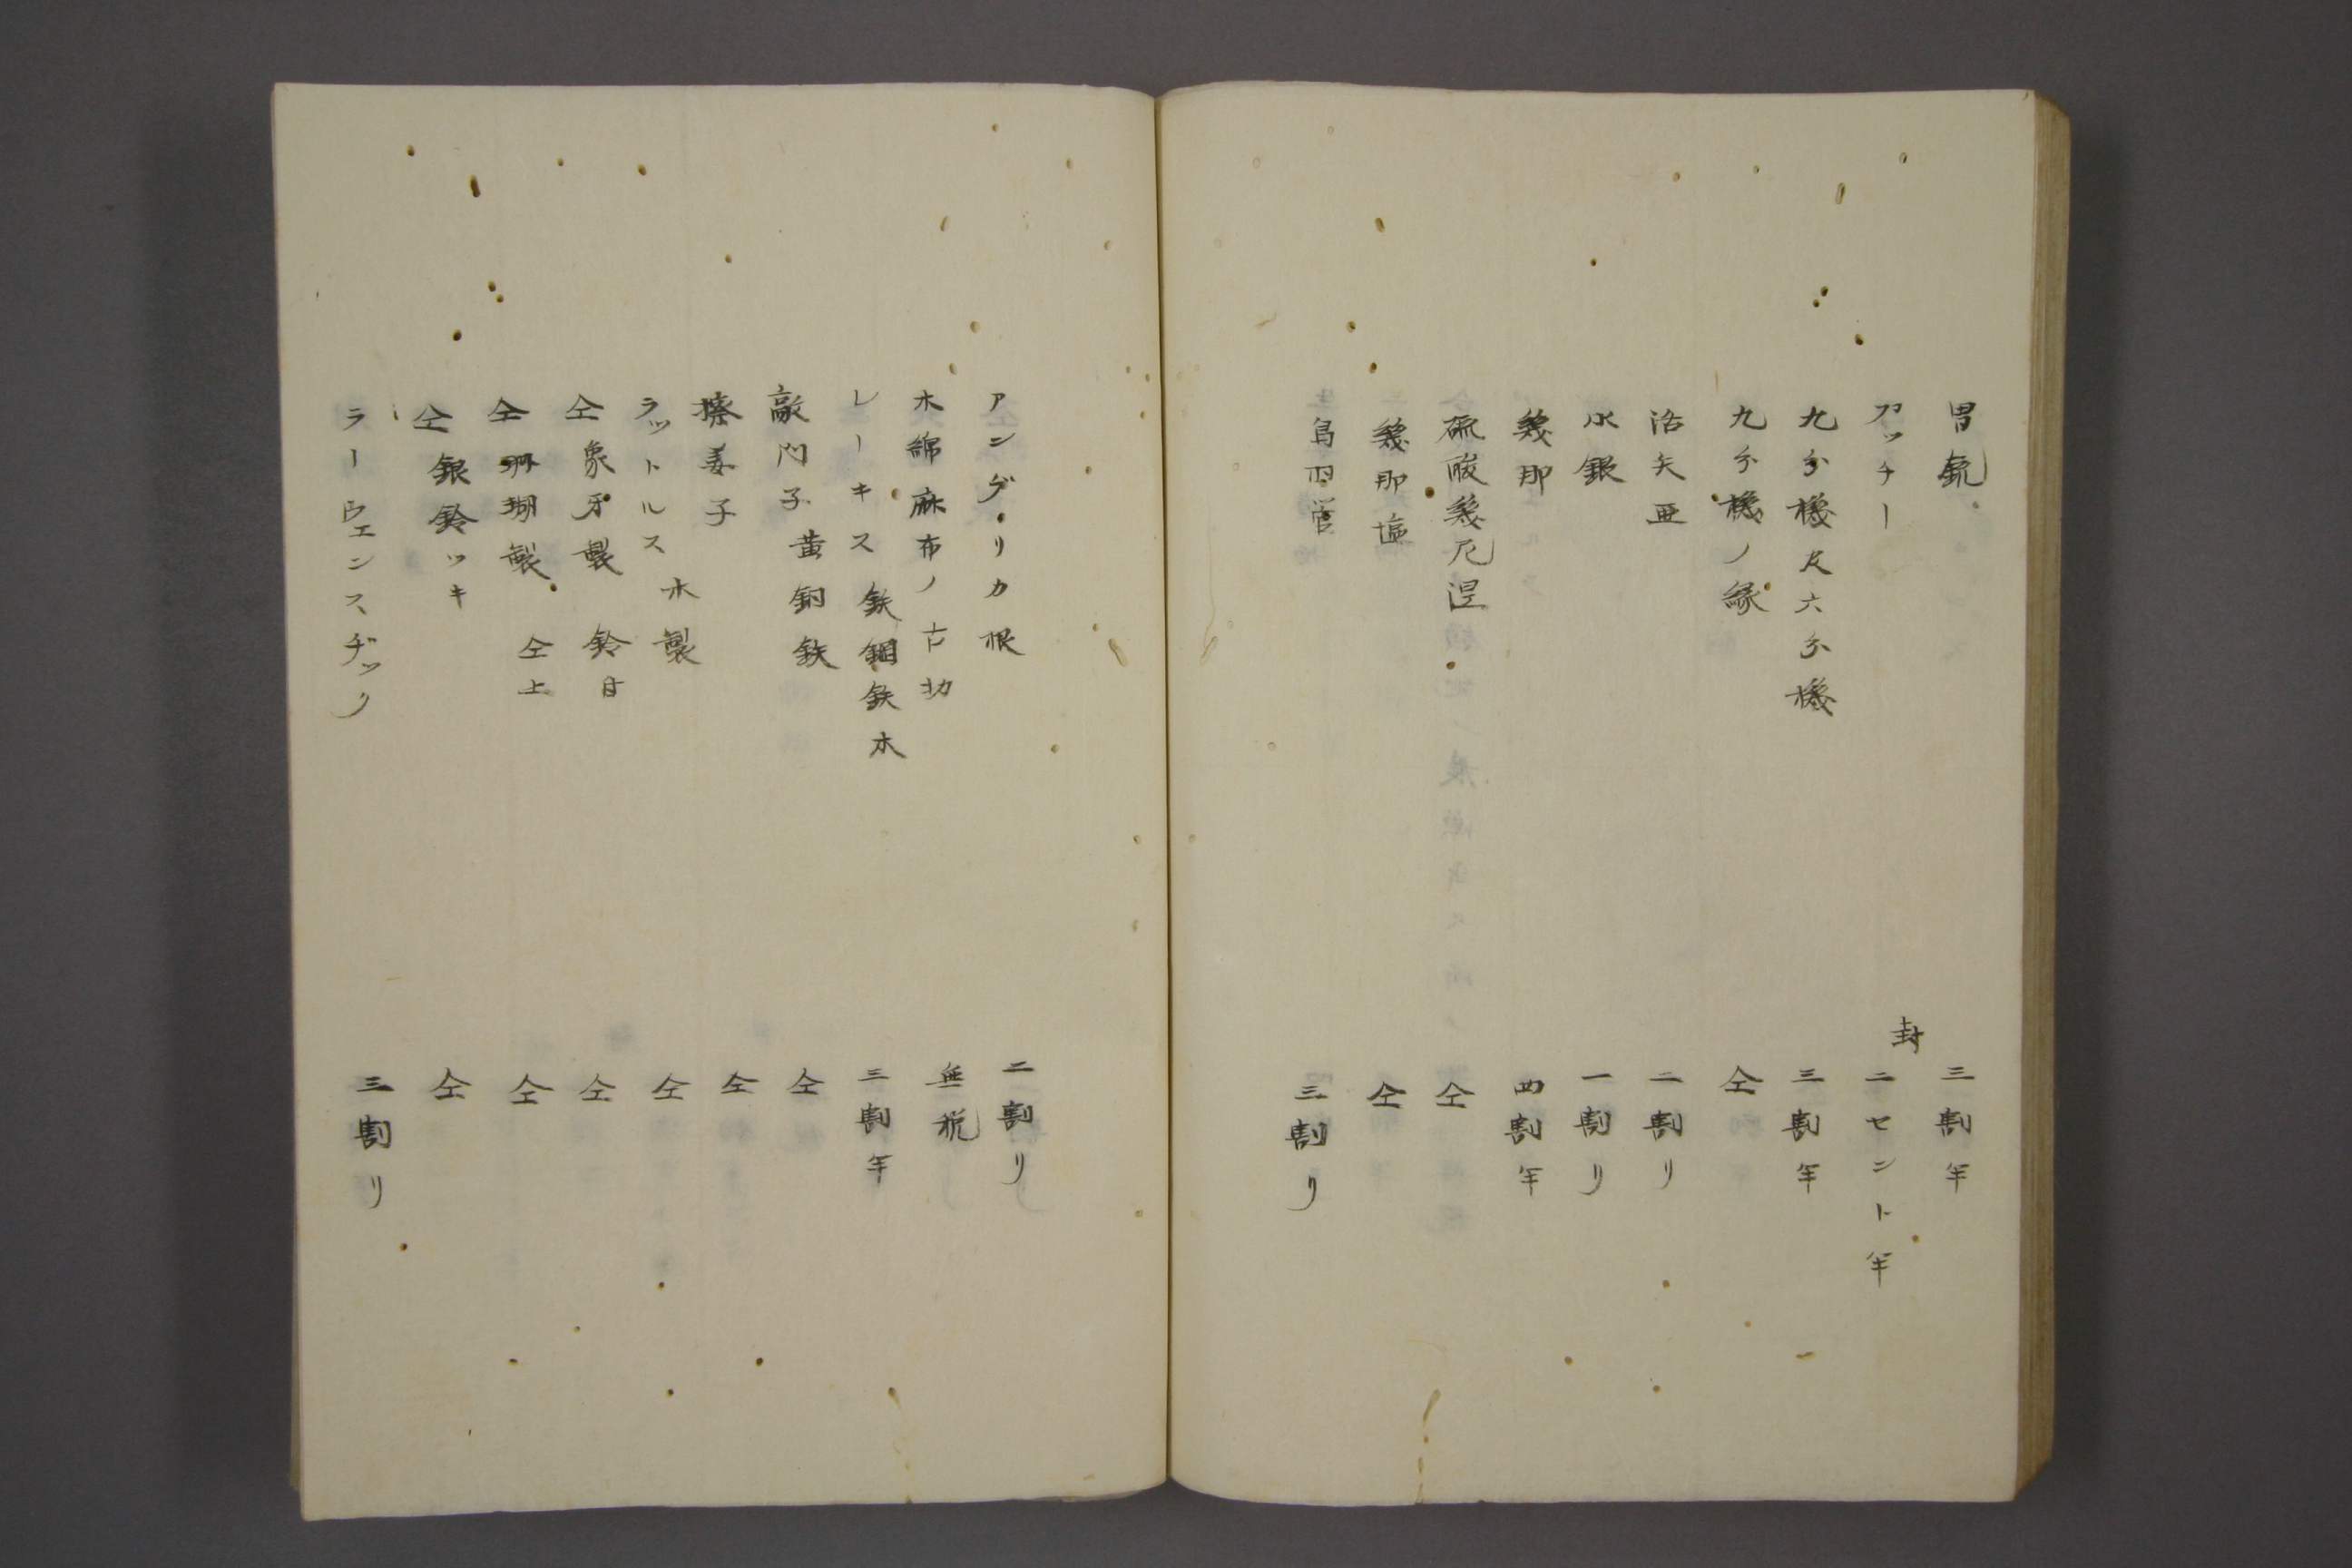 胃銃 三割半
カッチー 封二セント半
九分機及六分機 三割半
九分機ノ縁 仝
活矢亜 二割リ
水銀 一割リ
幾那 四割半
硫酸幾尼涅 仝
幾那塩 仝
鳥羽管 三割リ
アングリカ根 二割リ
木綿麻布ノ古切 無税
レーキス 鉄鋼鉄木 三割半
敲門子 黄銅鉄 仝
擦姜子 仝
ラットルス 木製 仝
仝象牙製 鈴付 仝
仝珊瑚製 仝上 仝
仝銀鈴ツキ 仝
ラーウェンスヂック 三割リ